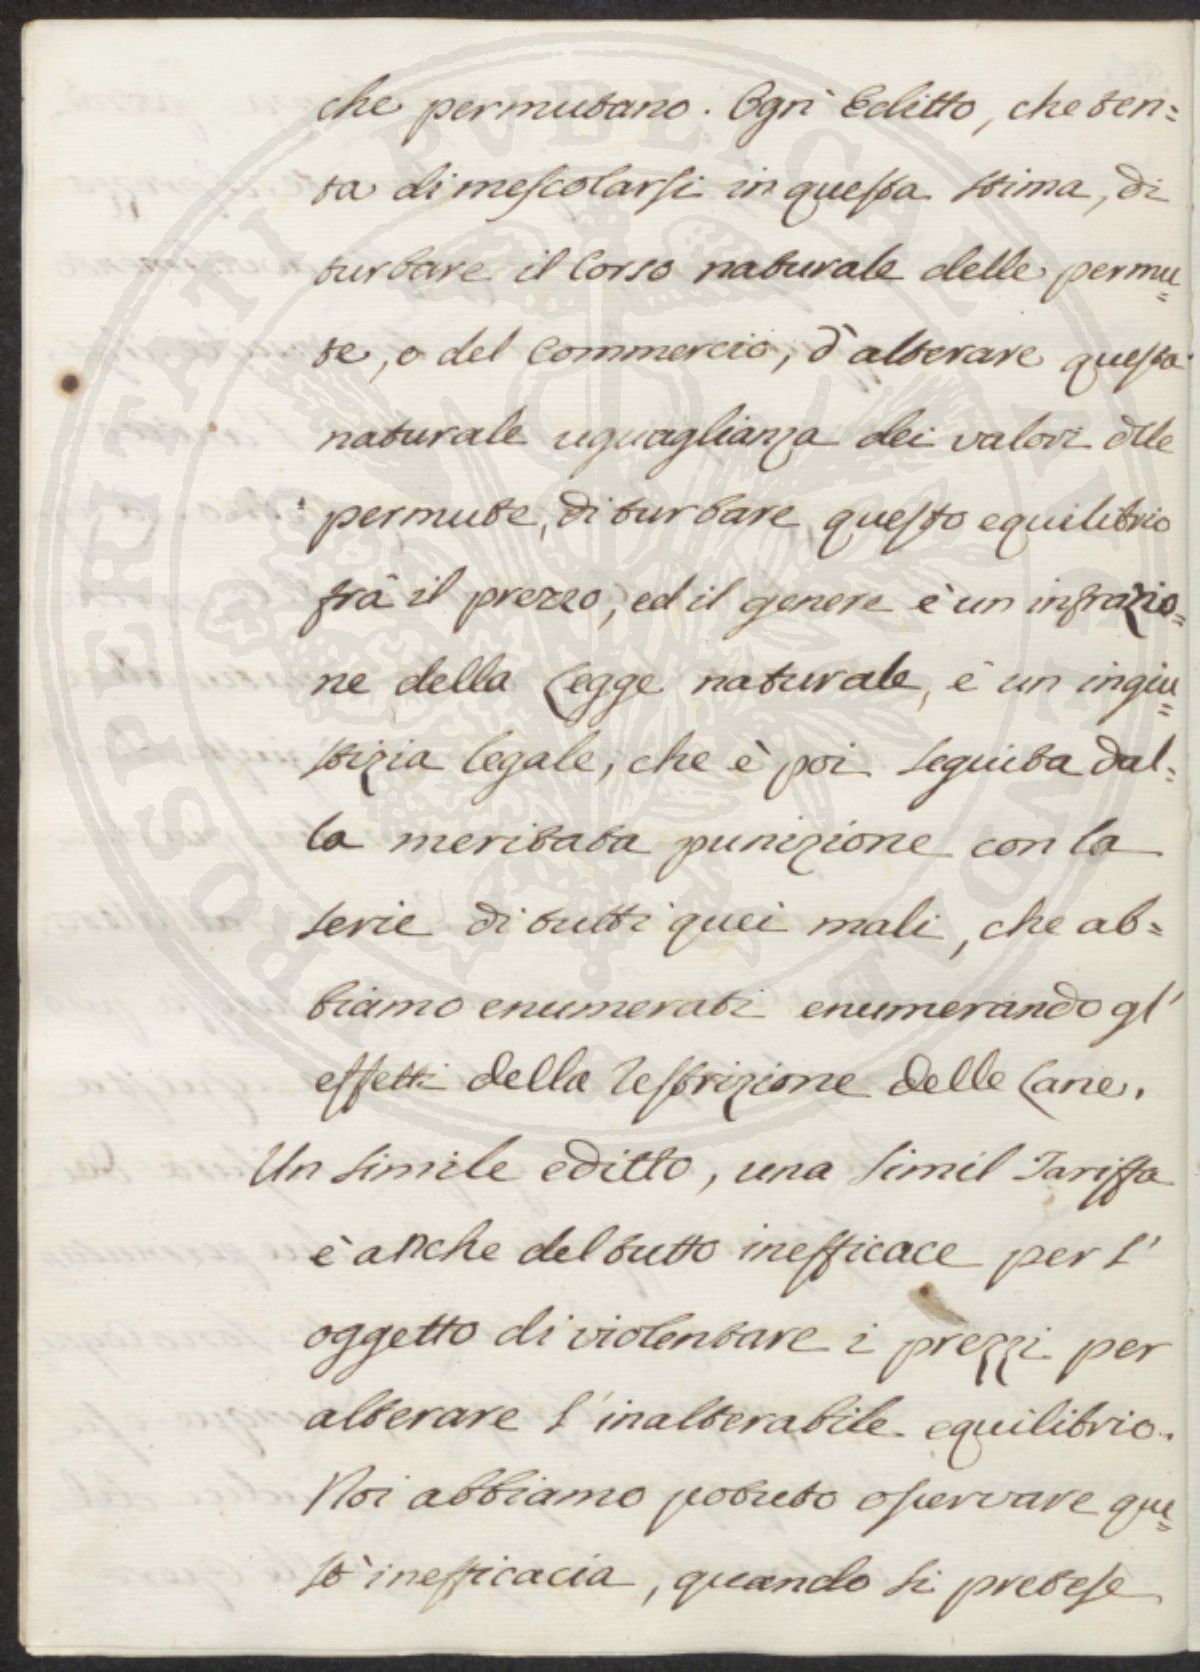 che permutano. Ogni Editto, che ten=
ta di mescolarsi in questa stima, di
turbare il Corso naturale delle permu=
te, o del Commercio, d'alterare questa
naturale uguaglianza dei valori delle
permute, di turbare questo equilibrio
frà il prezzo, ed il genere è un infrazio=
ne della Legge naturale, è un ingiu=
stizia legale, che è poi seguita dal=
la meritata punizione con la
serie di tutti quei mali, che ab=
biamo enumerati enumerando gl'
effetti della restrizione delle Lane.
Un simile editto, una simil Tariffa
è anche del tutto inefficace per l'
oggetto di violentare i prezzi per
alterare l'inalterabile equilibrio.
Noi abbiamo potuto osservare que=
st'inefficacia, quando si pretese
PROSPERITATI PUBLICAE